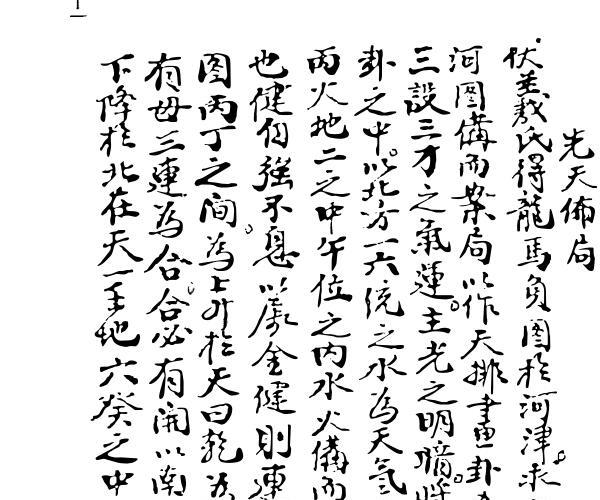 先天佈局
伏羲氏得龍馬負圖於河津求
河圖備而案局以作天排畫卦
三設三才之氣運主光之明暗
卦之中以北方一六統之水為天氣
丙火地二之中午位之内水火備而
也健自強不息以處金健則連
圖丙丁之間為上升於天曰乾為
有毋三連為合合必有開以南
下降於北在天一壬地六癸之中